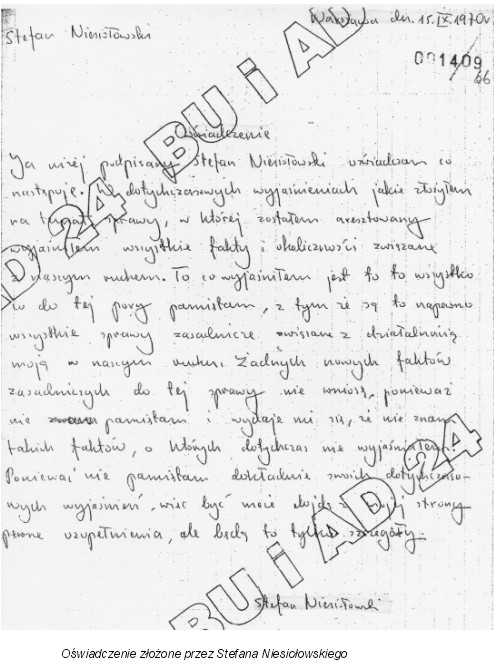 Warszawa dn. 15.IX.1970r.
Stefan Niesiołowski
001409
66
Oświadczenie
Ja niżej podpisany Stefan Niesiołowski oświadczam co
następuje. W dotychczasowych wyjaśnieniach jakie złożyłem
na temat sprawy, w której zostałem aresztowany
wyjaśniłem wszystkie fakty i okoliczności związane
z naszym ruchem. To co wyjaśniłem jest to to wszystko
co do tej pory pamiętam, z tym że są to napewno
wszystkie sprawy zasadnicze związane z działalnością
moją w naszym ruchu. Żadnych nowych faktów
zasadniczych do tej sprawy nie wniosę, ponieważ
nie pamiętam i wydaje mi się, że nie znam
takich faktów, o których dotychczas nie wyjaśniałem.
Ponieważ nie pamiętam dokładnie swoich dotychczaso-
wych wyjaśnień, więc być może dojdą z mojej strony
pewne uzupełnienia, ale będą to tylko szczegóły.
Stefan Niesiołowski
BU i AD 24
BU i AD 24
Oświadczenie złożone przez Stefana Niesiołowskiego